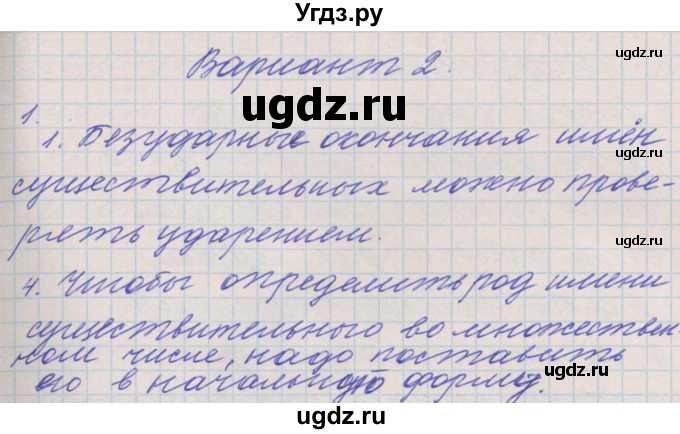 Угдз.ру
ugdz.ru
Вариант 2.
ugdz.ru
ugdz.ru
1.
1. Безударные окончания имён
существительных можно прове-
рять ударением.
ugdz.ru
4. Чтобы определить род имени
ugdz.ru
существительного во множествен-
ном числе, надо поставить
его в начальную форму.
ugdz.ru
ugdz.ru